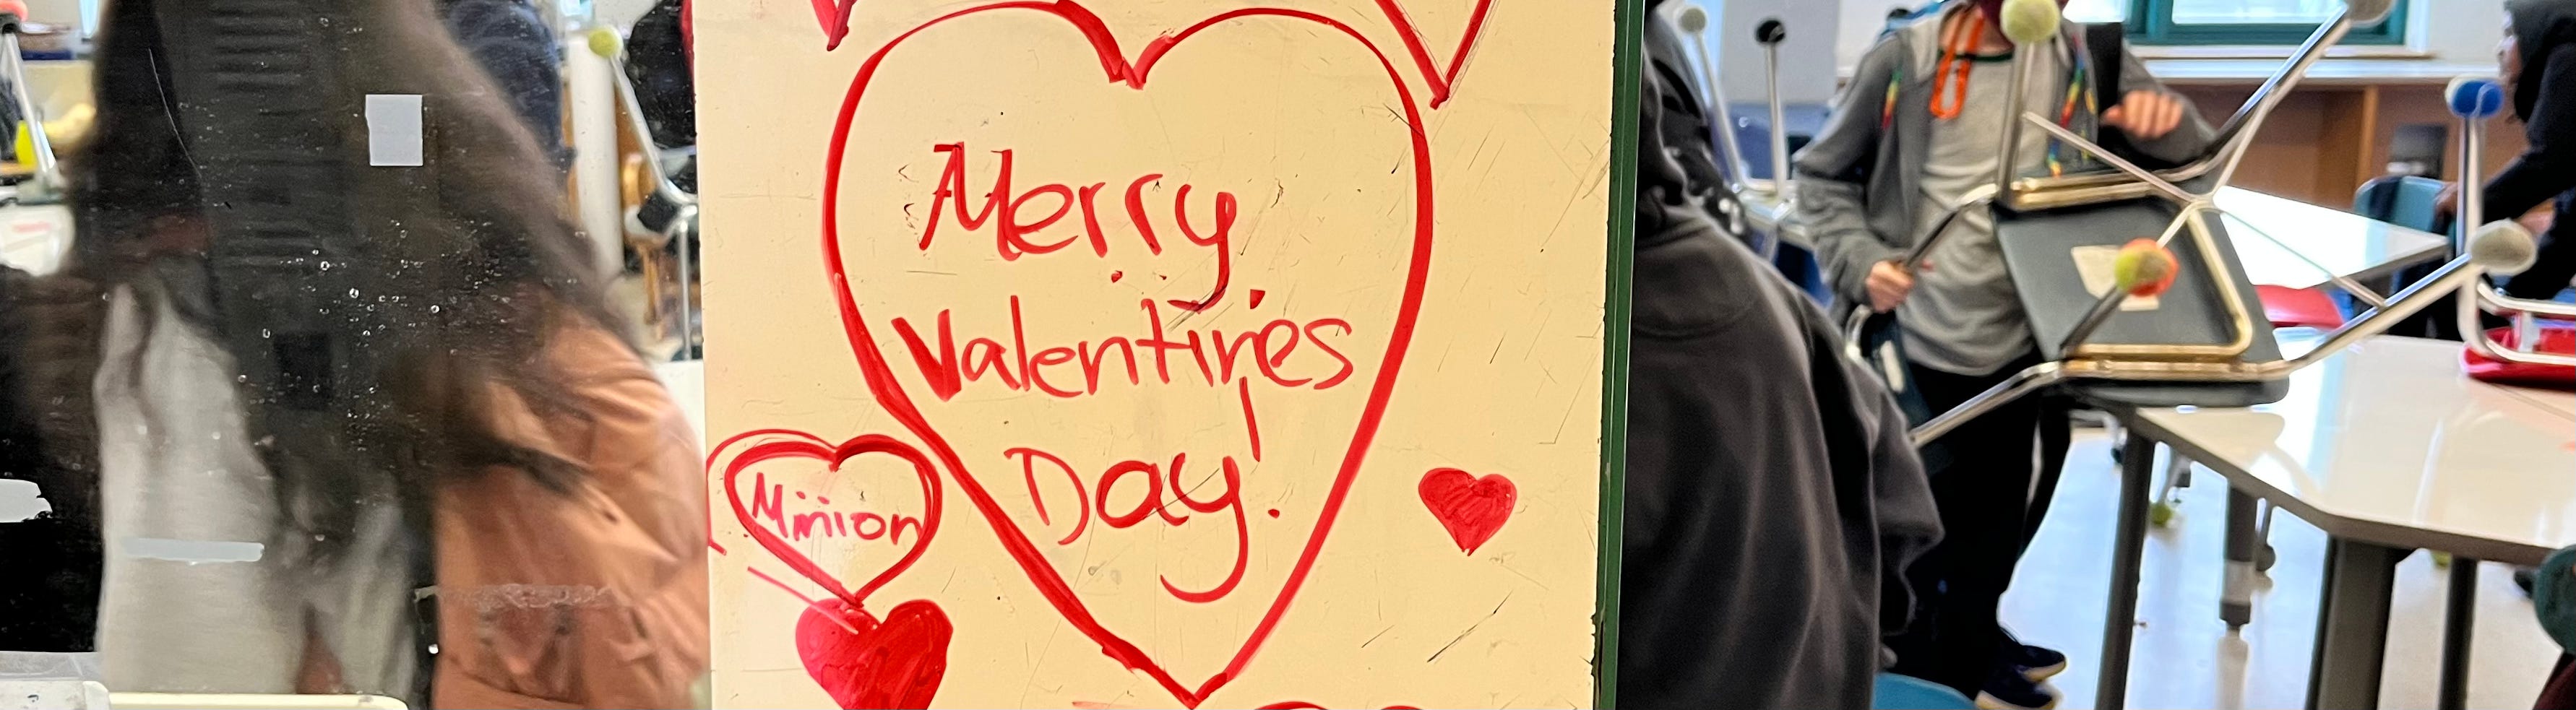 Merry
Valentines
Day!
Minion